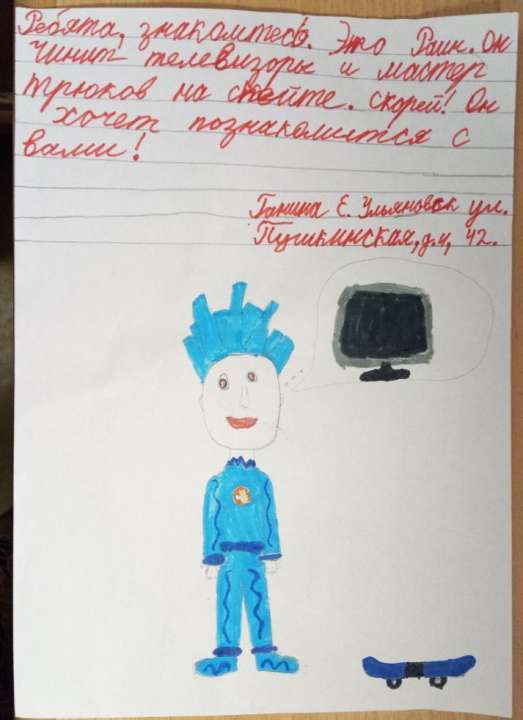 Ребята, знакомтесь. Это Раин. Он
чинит телевизоры и мастер
трюков на скейте. Скорей! Он
хочет познакомится с
вами!
Ганина Е. Ульяновск ул.
Пушкинская, д.4, 42.